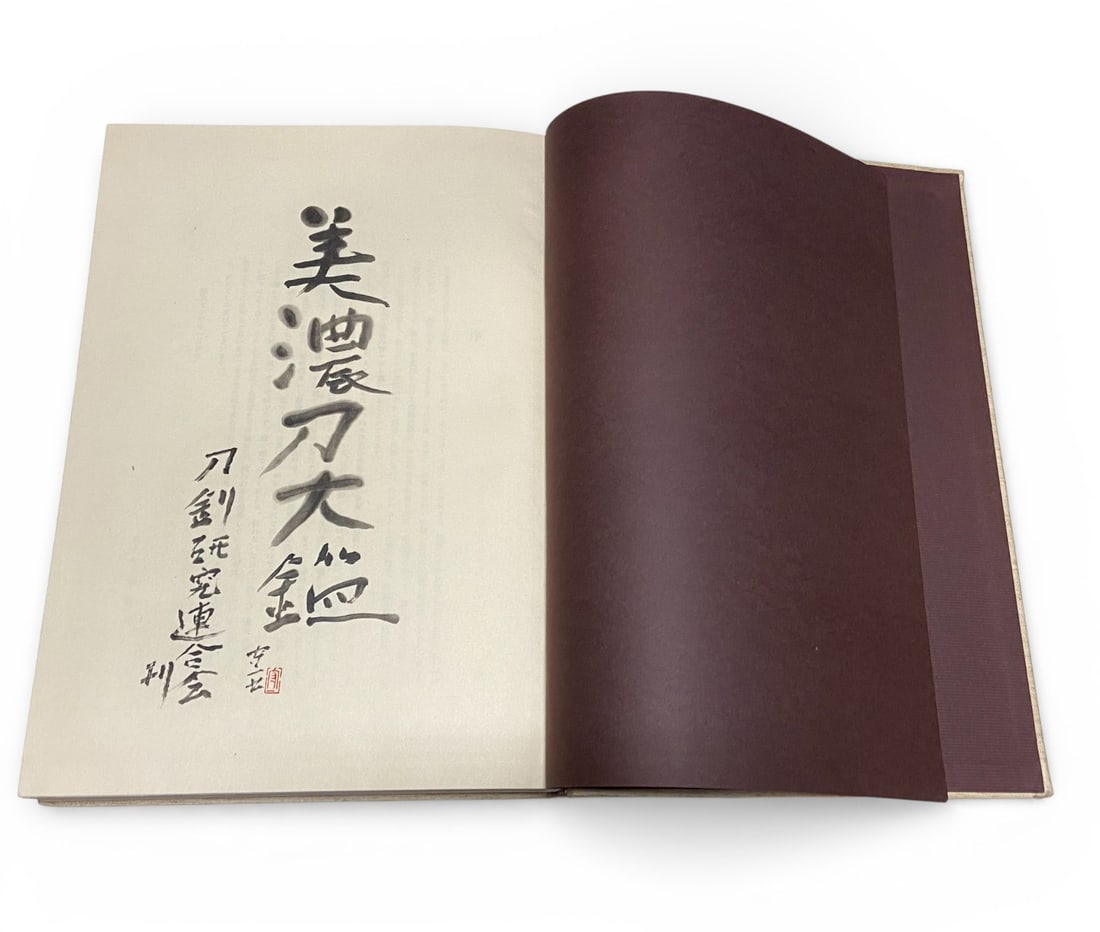 美濃刀大鑑
刀剣研究連合会
刊